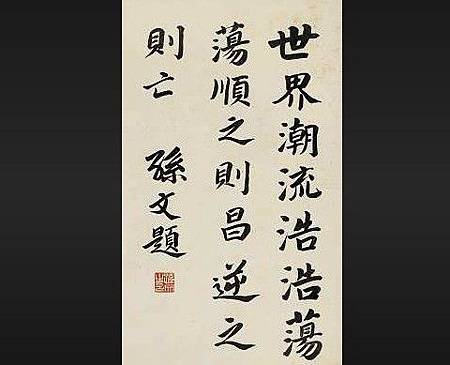 世界潮流浩浩蕩
蕩順之則昌逆之
則亡
孫文題